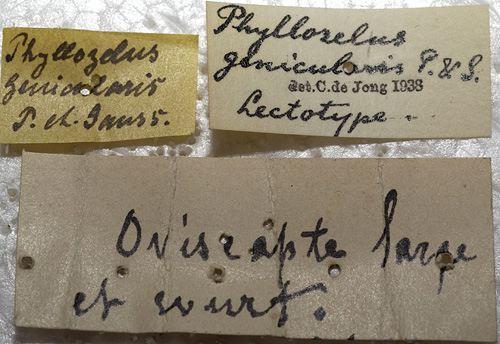 Phyllozelus
genicularis
P. et. Sauss.
Phyllozelus
genicularis P. & S.
det. C. de Jong 1938
Lectotype.
Oviscapte large
et court.